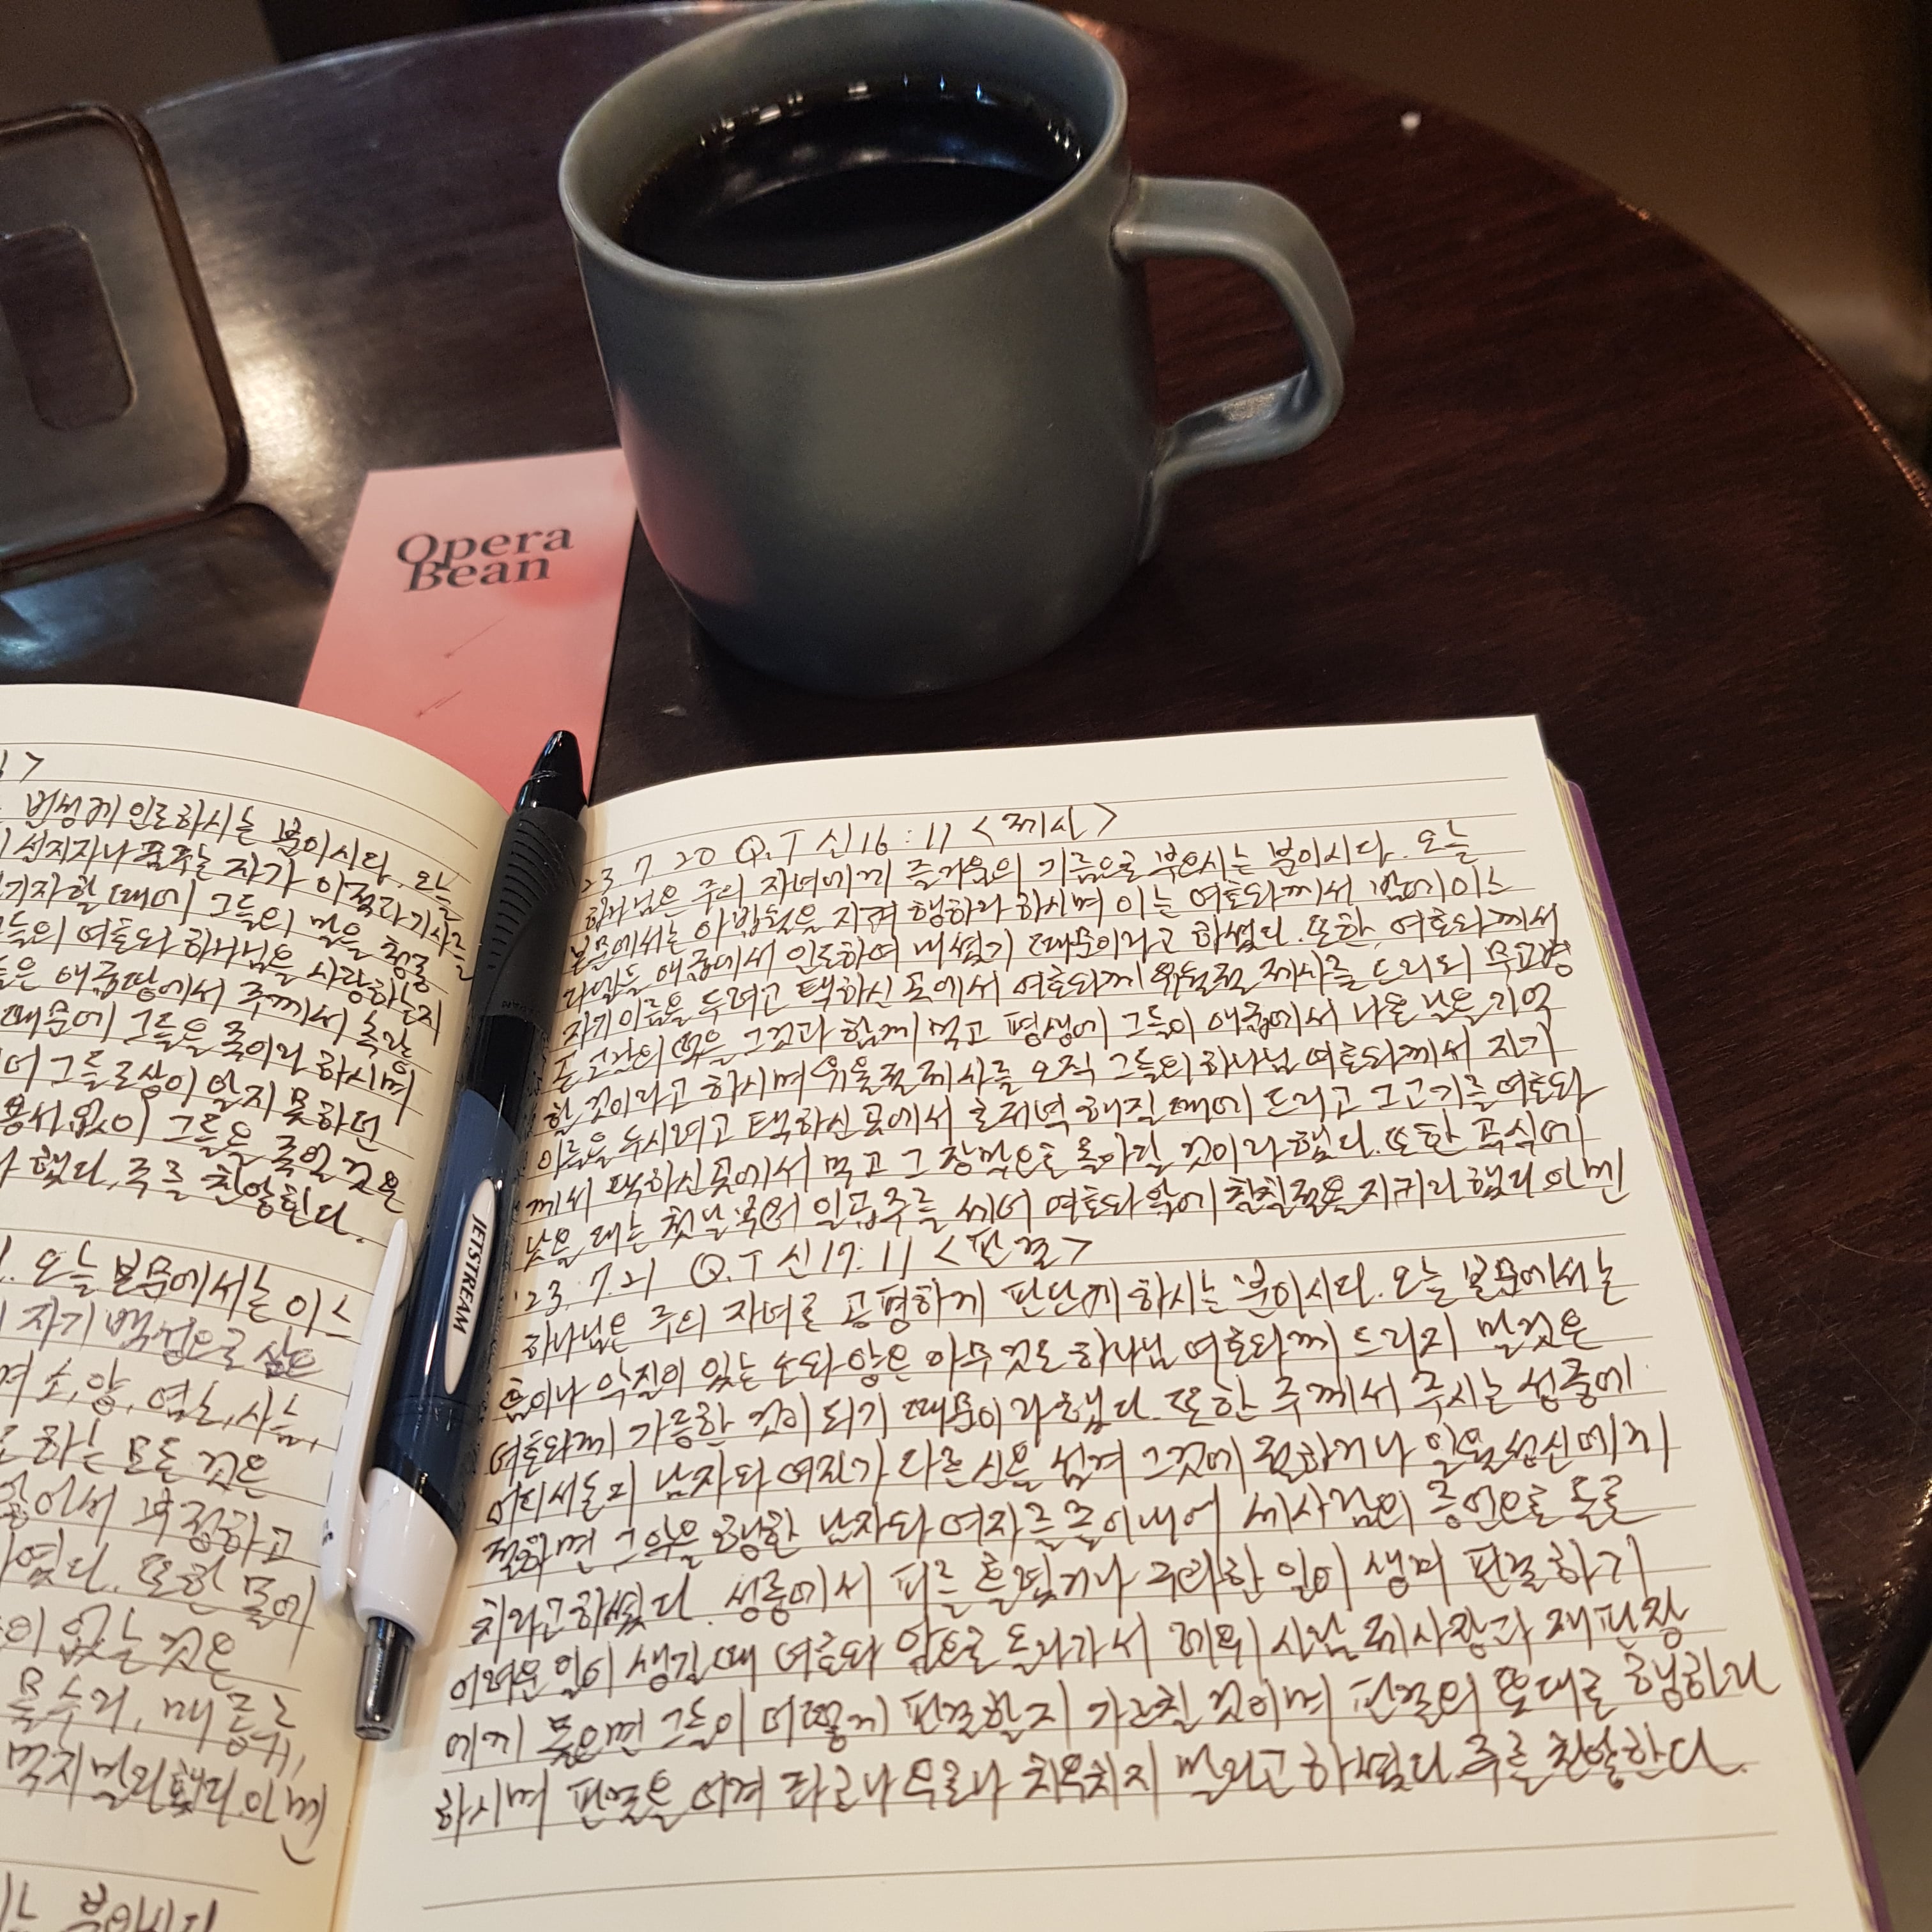 Opera
Bean
JETSTREAM
번성케 인도하시는 분이시다. 오늘
선지자나 꿈꾸는 자가 이적과 기사를
때에 그들의 말을 청종
그들의 여호와 하나님을 사랑하는지
애굽땅에서 주께서 속량
때문에 그들을 죽이라 하시며
알지 못하던
용서 없이 그들을 죽일 것은
했다. 주를 찬양한다.
오늘 본문에서는 이스
자기 백성으로 삼은
소, 양, 염소, 사슴,
하는 모든 것은
부정하고
또한 물에
없는 것은
물수리, 매 종류,
먹지 말라 했다. 아멘
23 7 20 Q.T 신16:11 <제사>
하나님은 주의 자녀에게 즐거움의 기름으로 부으시는 분이시다. 오늘
본문에서는 아빕월을 지켜 행하라 하시며 이는 여호와께서 밤에 이스
라엘을 애굽에서 인도하여 내셨기 때문이라고 하셨다. 또한, 여호와께서
자기 이름을 두려고 택하신 곳에서 여호와께 유월절 제사를 드리되 무교병
그것과 함께 먹고 평생에 그들이 애굽에서 나온 날을 기억
할 것이라고 하시며 유월절 제사를 오직 그들의 하나님 여호와께서 자기
이름을 두시려고 택하신 곳에서 초저녁 해질 때에 드리고 그 고기를 여호와
께서 택하신 곳에서 먹고 그 장막으로 돌아갈 것이라 했다. 또한 곡식에
낫을 대는 첫날부터 일곱 주를 세어 여호와 앞에 칠칠절을 지키라 했다 아멘
'23.7.21 Q.T 신17:11 <판결>
하나님은 주의 자녀로 공평하게 판단케 하시는 분이시다. 오늘 본문에서는
흠이나 악질이 있는 소와 양은 아무것도 하나님 여호와께 드리지 말것은
여호와께 가증한 것이 되기 때문이라 했다. 또한 주께서 주시는 성중에
어디서든지 남자나 여자가 다른 신을 섬겨 그것에 절하거나 일월성신에게
절하면 그 악을 행한 남자와 여자를 끌어내어 세사람의 증언으로 돌로
치라고 하셨다. 성중에서 피를 흘렸거나 구타한 일이 생겨 판결하기
어려운 일이 생길 때 여호와 앞으로 올라가서 레위 사람 제사장과 재판장
에게 물으면 그들이 어떻게 판결할지 가르칠 것이며 판결의 토대로 행하라
하시며 판결을 어겨 좌로나 우로나 치우치지 말라고 하셨다. 주를 찬양한다.